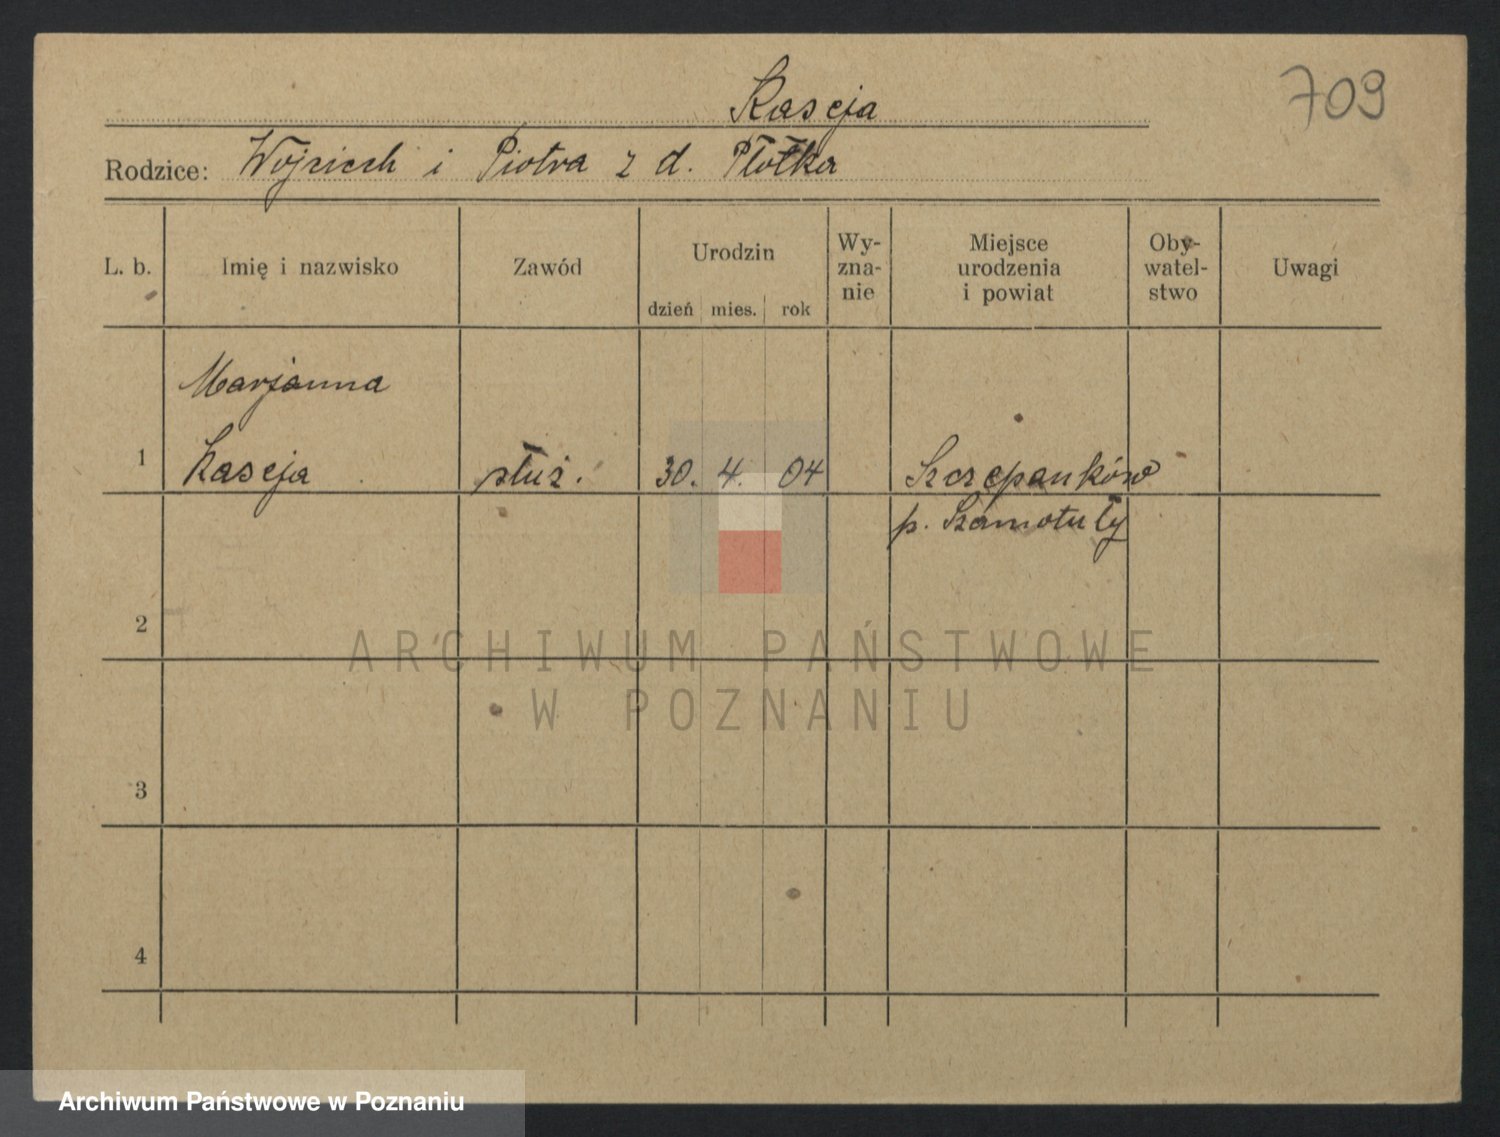 Kaseja
709
Rodzice: Wojciech i Piotra z d. Płotka
L. b.
Imię i nazwisko
Zawód
Urodzin
dzień mies. rok
Wy-
zna-
nie
Miejsce
urodzenia
i powiat
Oby-
watel-
stwo
Uwagi
Marjanna
1 Kaseja służ. 30. 4. 04 Szczepanków
p. Szamotuły
2
ARCHIWUM PAŃSTWOWE
W POZNANIU
3
4
Archiwum Państwowe w Poznaniu